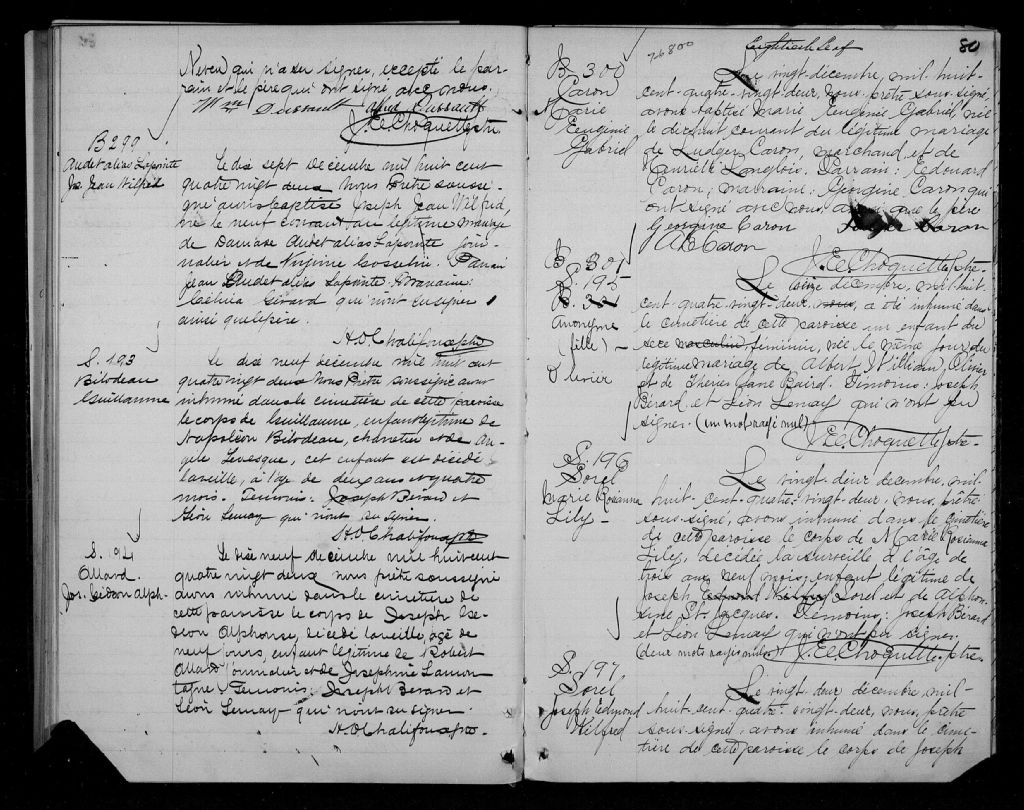 Neveu qui n'a su signer, excepté le par-
rain et le père qui ont signé avec nous.
Wm Dussault Alfred Dussault
J.E.Choquette ptre
B 299
Audet alias Lapointe
Js Jean Wilfrid
Le dix sept Décembre mil huit cent
quatre vingt deux Nous Prêtre soussi-
gné avons baptisé Joseph Jean Wilfrid,
né le neuf courant du légitime mariage
de Damase Audet alias Lapointe jour-
nalier et de Virginie Gosselin. Parrain
Jean Audet alias Lapointe. Marraine:
Gérard qui n'ont su signer
ainsi que le père.
H.O.Chalifoux ptre
S. 193
Bilodeau
Guillaume
Le dix neuf décembre mil huit cent
quatre vingt deux Nous Prêtre soussigné avons
inhumé dans le cimetière de cette paroisse
le corps de Guillaume, enfant légitime de
Napoléon Bilodeau, charretier et de An-
gèle Levesque, cet enfant est décédé
la veille, à l'âge de deux ans et quatre
mois. Témoins: Joseph Bérard et
Léon Lemay qui n'ont su signer.
H.O.Chalifoux ptre
S. 194
Allard.
Jos. Gédéon Alph-
Le dix neuf décembre mil huit cent
quatre vingt deux nous prêtre soussigné
avons inhumé dans le cimetière de
cette paroisse le corps de Joseph Gé-
déon Alphonse, décédé la veille, âgé de
neuf jours, enfant légitime de Robert
Allard journalier et de Josephine Lamon-
tagne Témoins: Joseph Bérard et
Léon Lemay qui n'ont su signer.
H.O.Chalifoux ptre.
76800
Eightieth Leaf
80
B 300
Caron
Marie
Eugénie
Gabriel
Le vingt-décembre, mil-huit-
cent-quatre-vingt-deux, nous, prêtre sous-signé,
avons baptisé Marie Eugénie Gabriel, née
le dix-huit courant du légitime mariage
de Ludger Caron, marchand et de
Henriette Langlois. Parrain: Edouard
Caron; marraine: Georgine Caron qui
ont signé avec nous, ainsi que le père
Georgine Caron Ludger Caron
Caron
J.E.Choquette, ptre-
B 301
S. 195
Anonyme
(fille) -
Olivier
Le seize décembre, mil-huit
cent-quatre-vingt-deux, nous, a été inhumé dans
le cimetière de cette paroisse un enfant du
sexe masculin, féminin, née le même jour du
légitime mariage de Albert William Olivier
et de Jane Baird. Témoins: Joseph
Bérard et Léon Lemay qui n'ont su
signer. (un mot rayé nul)
J.E.Choquette ptre-
S. 196
Sorel
Marie Rosianna
Lily -
Le vingt-deux décembre, mil-
huit-cent-quatre-vingt-deux, nous, prêtre
sous-signé, avons inhumé dans le cimetière
de cette paroisse le corps de Marie Rosianna
Lily, décédée la surveille à l'âge de
trois ans neuf mois, enfant légitime de
Joseph Sorel et de Alphon-
sine St. Jacques. Témoins: Joseph Bérard
et Léon Lemay qui n'ont su signer.
(deux mots rayés nuls) J.E.Choquette, ptre.
S. 197
Sorel
Joseph Edmond
Wilfred
Le vingt-deux décembre, mil-
huit-cent-quatre-vingt-deux, nous, prêtre
sous-signé, avons inhumé dans le cime-
tière de cette paroisse le corps de Joseph